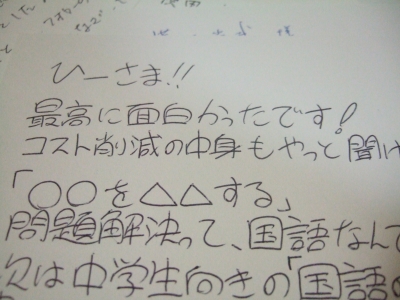 ひーさま!!
最高に面白かったです!
コスト削減の中身もやっと聞け
「○○を△△する」
問題解決って、国語なんて
次は中学生向きの「国語の